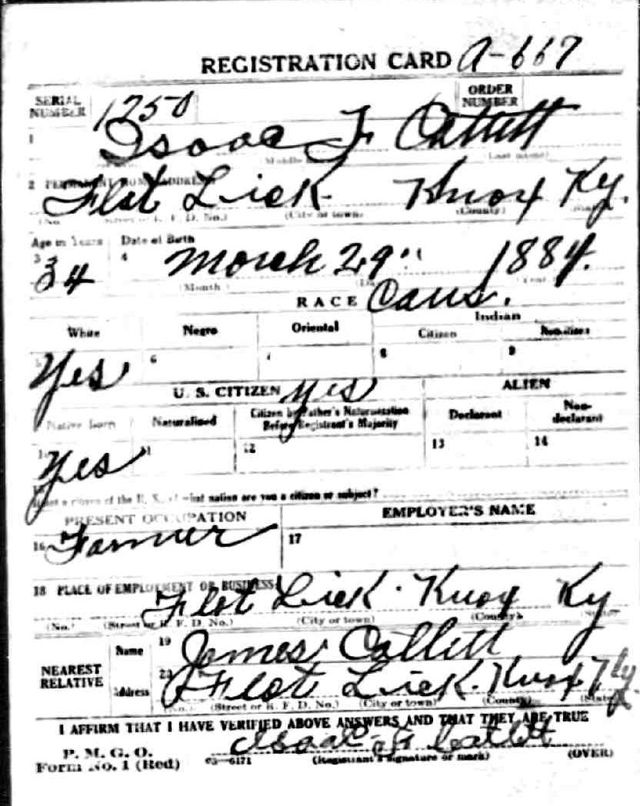 REGISTRATION CARD A-667
SERIAL NUMBER 1250 ORDER NUMBER
1 Isaac F Catlett
(Middle name) (Last name)
2 PERMANENT HOME ADDRESS
Flat Lick Knox Ky.
(No.) (Street or R. F. D. No.) (City or town) (County) (State)
Age in Years Date of Birth
3 34 4 March 29" 1884.
(Month) (Day) (Year)
RACE Caus.
White Negro Oriental Indian
Citizen
5 Yes 6 7 8 9
U. S. CITIZEN yes ALIEN
Native Born Naturalized Citizen by Father's Naturalization Before Registrant's Majority Declarant Non-declarant
10 Yes 11 12 13 14
15 If not a citizen of the U. S., of what nation are you a citizen or subject?
PRESENT OCCUPATION EMPLOYER'S NAME
16 Farmer 17
18 PLACE OF EMPLOYMENT OR BUSINESS:
Flat Lick. Knox Ky
(No.) (Street or R. F. D. No.) (City or town) (County) (State)
NEAREST RELATIVE Name 19 James Catlett
Address 20 Flat Lick. Knox Ky
(No.) (Street or R. F. D. No.) (City or town) (County) (State)
I AFFIRM THAT I HAVE VERIFIED ABOVE ANSWERS AND THAT THEY ARE TRUE
Isaac F Catlett
P. M. G. O.
Form No. 1 (Red) 03—6171 (Registrant's signature or mark) (OVER)